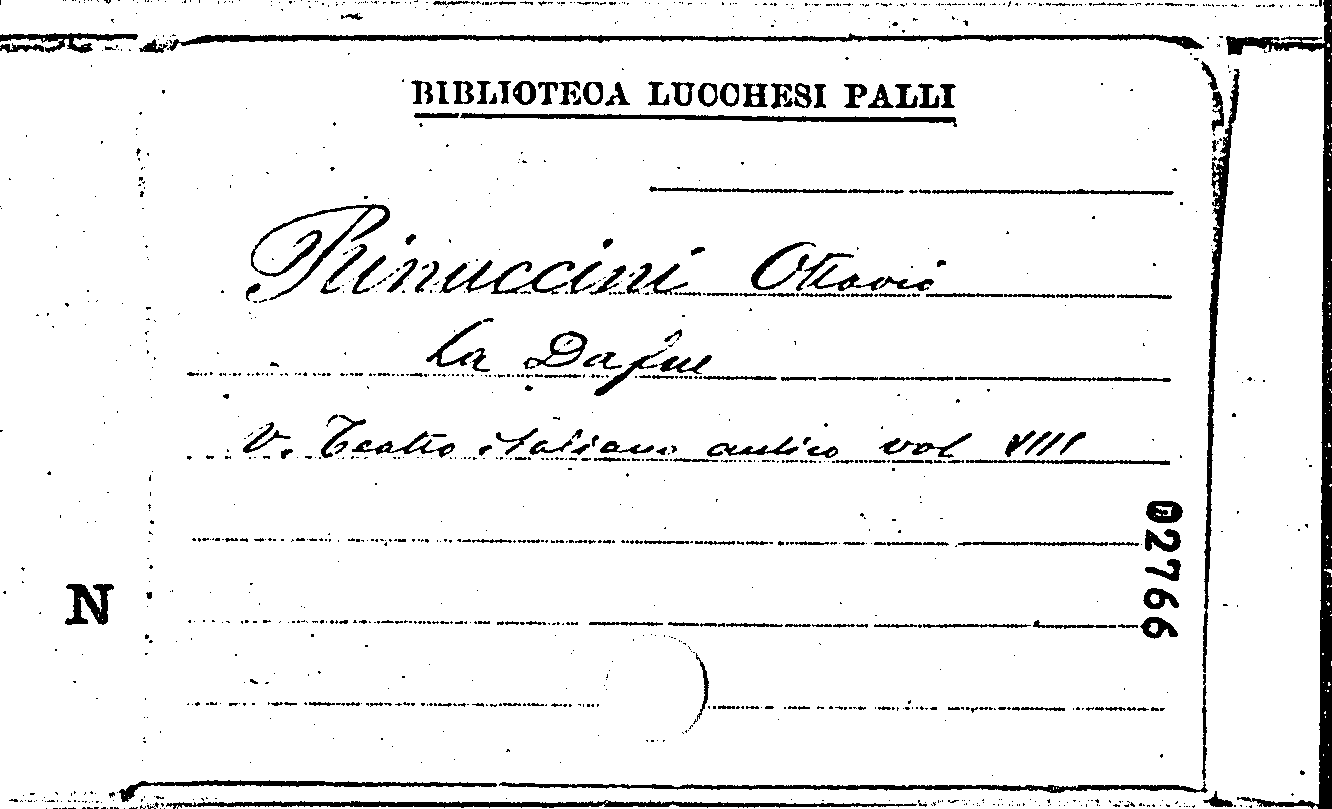 BIBLIOTECA LUCCHESI PALLI
Rinuccini Ottavio
La Dafne
V. Teatro italiano antico vol VIII
N
02766